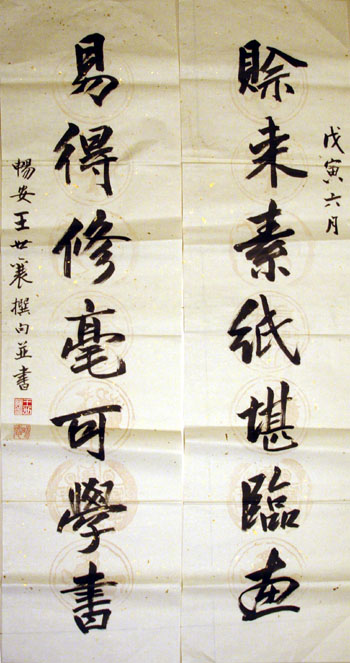 戊寅六月
賒来素紙堪臨画
易得修毫可學書
暢安王世襄撰句並書